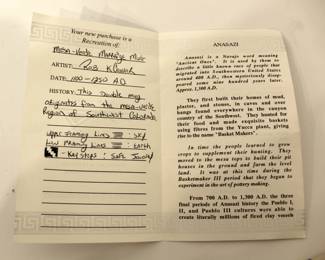 Your new purchase is a
Recreation of:
Mesa-Verde Marriage Mug
ARTIST: Rob
DATE: 1100-1250 AD
HISTORY: This double mug
originates from the mesa-Verde
Region of Southwest Colorado
Framing Lines = sky
Framing Lines = Earth
- Key steps: Safe Journey
ANASAZI
Anasazi is a Navajo word meaning
"Ancient Ones". It is used by them to
describe a little known race of people that
migrated into Southwestern United States
around 400 A.D., then mysteriously disap-
peared some nine hundred years later.
Approx. 1,300 A.D.
They first built their homes of mud,
plaster, and stones, in caves and over
hangs found everywhere in the canyon
country of the Southwest. They hunted for
food and made exquisite baskets
using fibres from the Yucca plant, giving
rise to the name "Basket Makers".
In time the people learned to grow
crops to supplement their hunting. They
moved to the mesa tops to build their pit
houses in the ground and farm the level
land. It was at this time during the
Basketmaker III period that they began to
experiment in the art of pottery making.
From 700 A.D. to 1,300 A.D. the three
final periods of Anasazi history the Pueblo I,
II, and Pueblo III cultures were able to
create literally millions of fired clay vessels